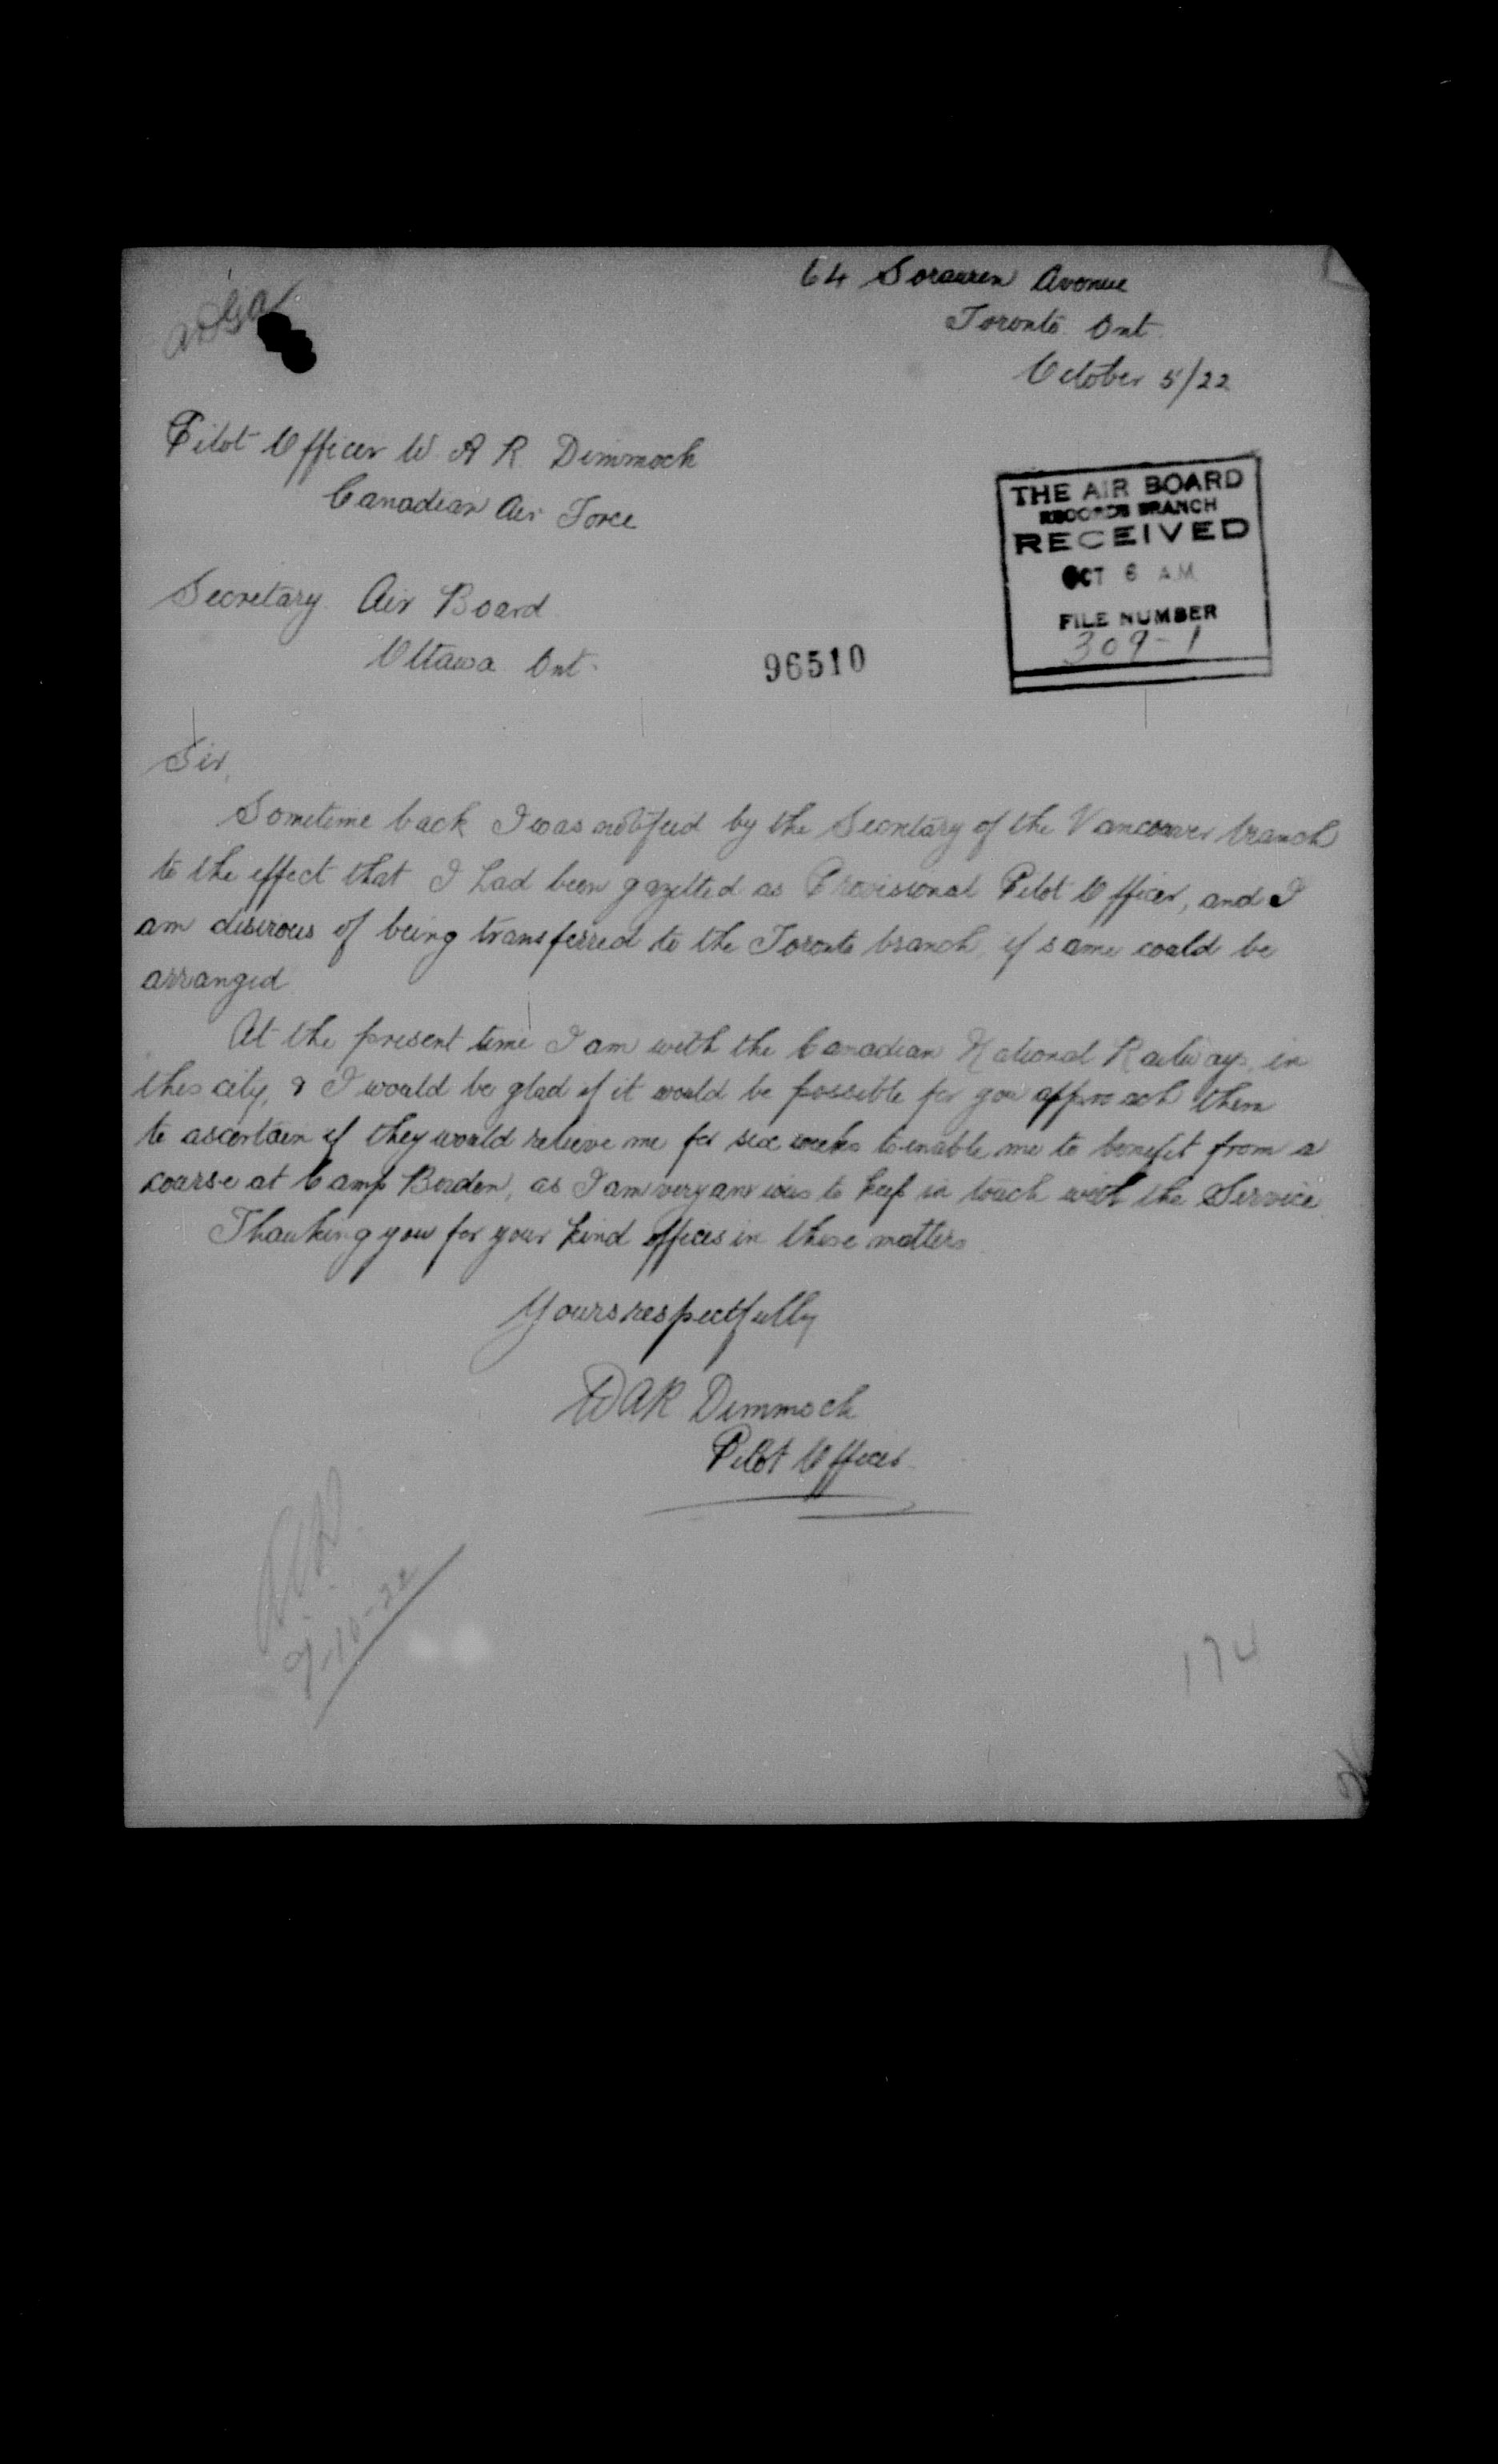 64 Sorauren Avenue
Toronto. Ont.
October 5/22
Pilot Officer W. A R. Dimmock
Canadian Air Force
THE AIR BOARD
RECORDS BRANCH
RECEIVED
OCT 6 A.M.
FILE NUMBER
309-1
Secretary. Air Board
Ottawa. Ont.
96510
Sir,
Sometime back I was notified by the Secretary of the Vancouver branch
to the effect that I had been gazetted as Provisional Pilot Officer, and I
am desirous of being transferred to the Toronto branch, if same could be
arranged
At the present time I am with the Canadian National Railways, in
this city, & I would be glad if it would be possible for you approach them
to ascertain if they would relieve me for six weeks to enable me to benefit from a
course at Camp Borden, as I am very anxious to keep in touch with the Service
Thanking you for your kind offices in these matters
Yours respectfully
WAR Dimmock
Pilot Officer
9-10-22
174